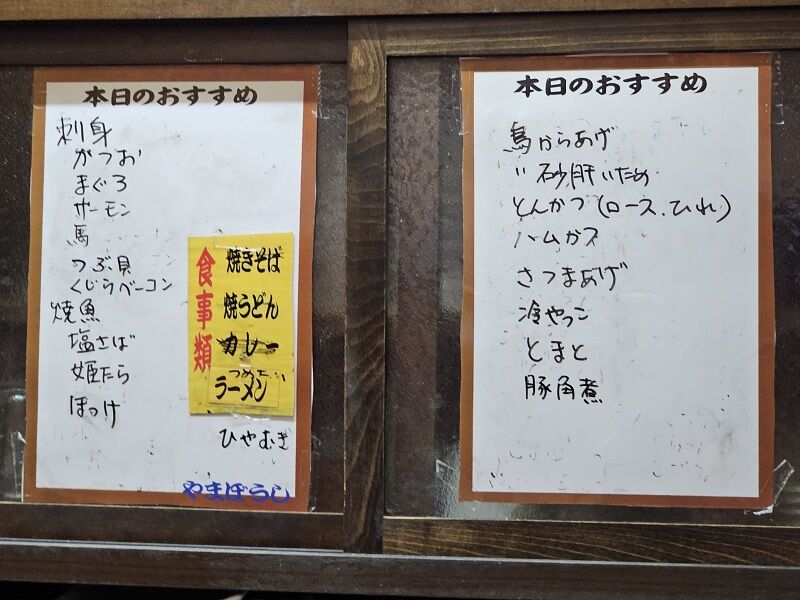 本日のおすすめ
刺身
がつお
まぐろ
サーモン
馬
つぶ貝
くじらベーコン
焼魚
塩さば
姫たら
ほっけ
食事類
焼きそば
焼うどん
カレー
つめたい
ラーメン
ひやむぎ
やまぼうし
本日のおすすめ
鳥からあげ
〃 砂肝いため
とんかつ(ロース、ひれ)
ハムカツ
さつまあげ
冷やっこ
とまと
豚角煮